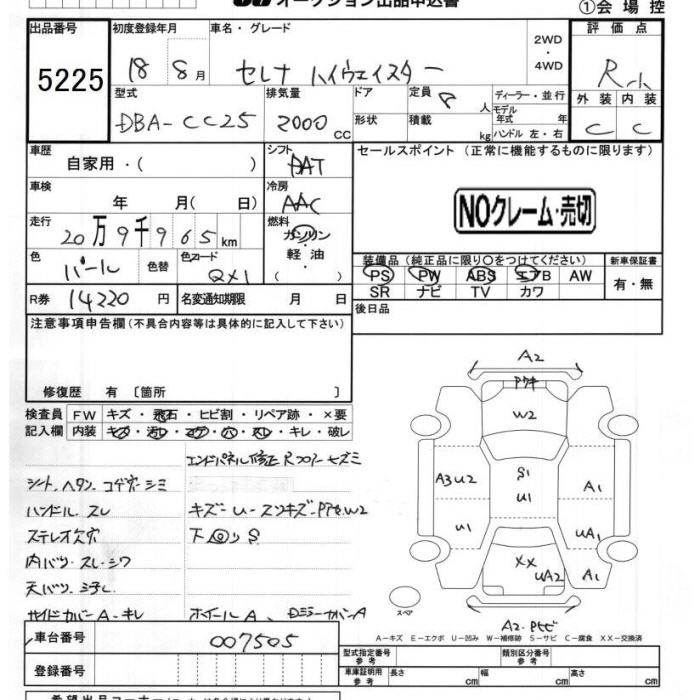 オークション出品申込書
①会場控
出品番号 初度登録年月 車名・グレード 評価点
5225 18 8月 セレナ ハイウェイスター 2WD・4WD R
型式 排気量 ドア 定員 8人 ディーラー・並行 外装 内装
DBA-CC25 2000cc 形状 積載 kg モデル年式 年 ハンドル 左・右 C C
車歴 自家用・( ) シフト AT セールスポイント (正常に機能するものに限ります)
車検 年 月( 日) 冷房 AAC
NOクレーム・売切
走行 20万9千965km 燃料 ガソリン・軽油・( )
色 パール 色替 色コード QX1
装備品 (純正品に限り○をつけてください) 新車保証書
PS PW ABS エアB AW 有・無
SR ナビ TV カワ
R券 14220円 名変通知期限 月 日 後日品
注意事項申告欄(不具合内容等は具体的に記入して下さい)
修復歴 有 〔箇所 〕
検査員 FW キズ・飛石・ヒビ割・リペア跡・×要
記入欄 内装 キズ・汚レ・コゲ・穴・スレ・キレ・破レ
シート、ヘタリ、コゲ穴・シミ
ハンドル、スレ
キズ
W2
下回りS
内バリ・スレ・シワ
天バリ・ヨゴレ
サイドカバーA・キレ
ホイールA、DミラーカバーA
A2
W2
A3 U2
S1
U1
A1
U1
UA1
XX
UA2
A1
スペア
A2
A-キズ E-エクボ U-凹み W-補修跡 S-サビ C-腐食 XX-交換済
車台番号 007505 型式指定番号 参考 類別区分番号 参考
登録番号 車庫証明用 参考 長さ cm 幅 cm 高さ cm